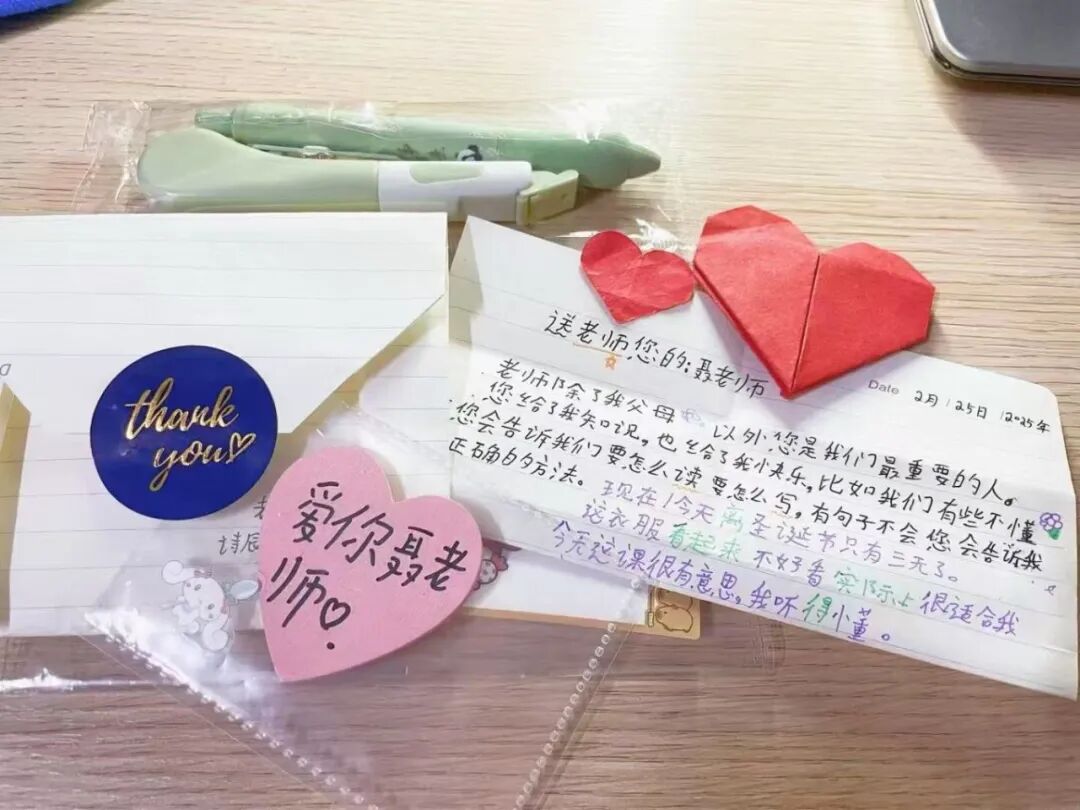 thank
you
爱你聂老
师
送老师您的:聂老师
Date 2月 25日 2025年
老师除了我父母 以外您是我们最重要的人。
您给了我知识,也给了我快乐,比如我们有些不懂
您会告诉我们要怎么读要怎么写,有句子不会您会告诉我
正确的方法。现在1今天离圣诞节只有三天了。
这衣服看起来不好看实际上很适合我
今天这课很有意思,我听得小董。